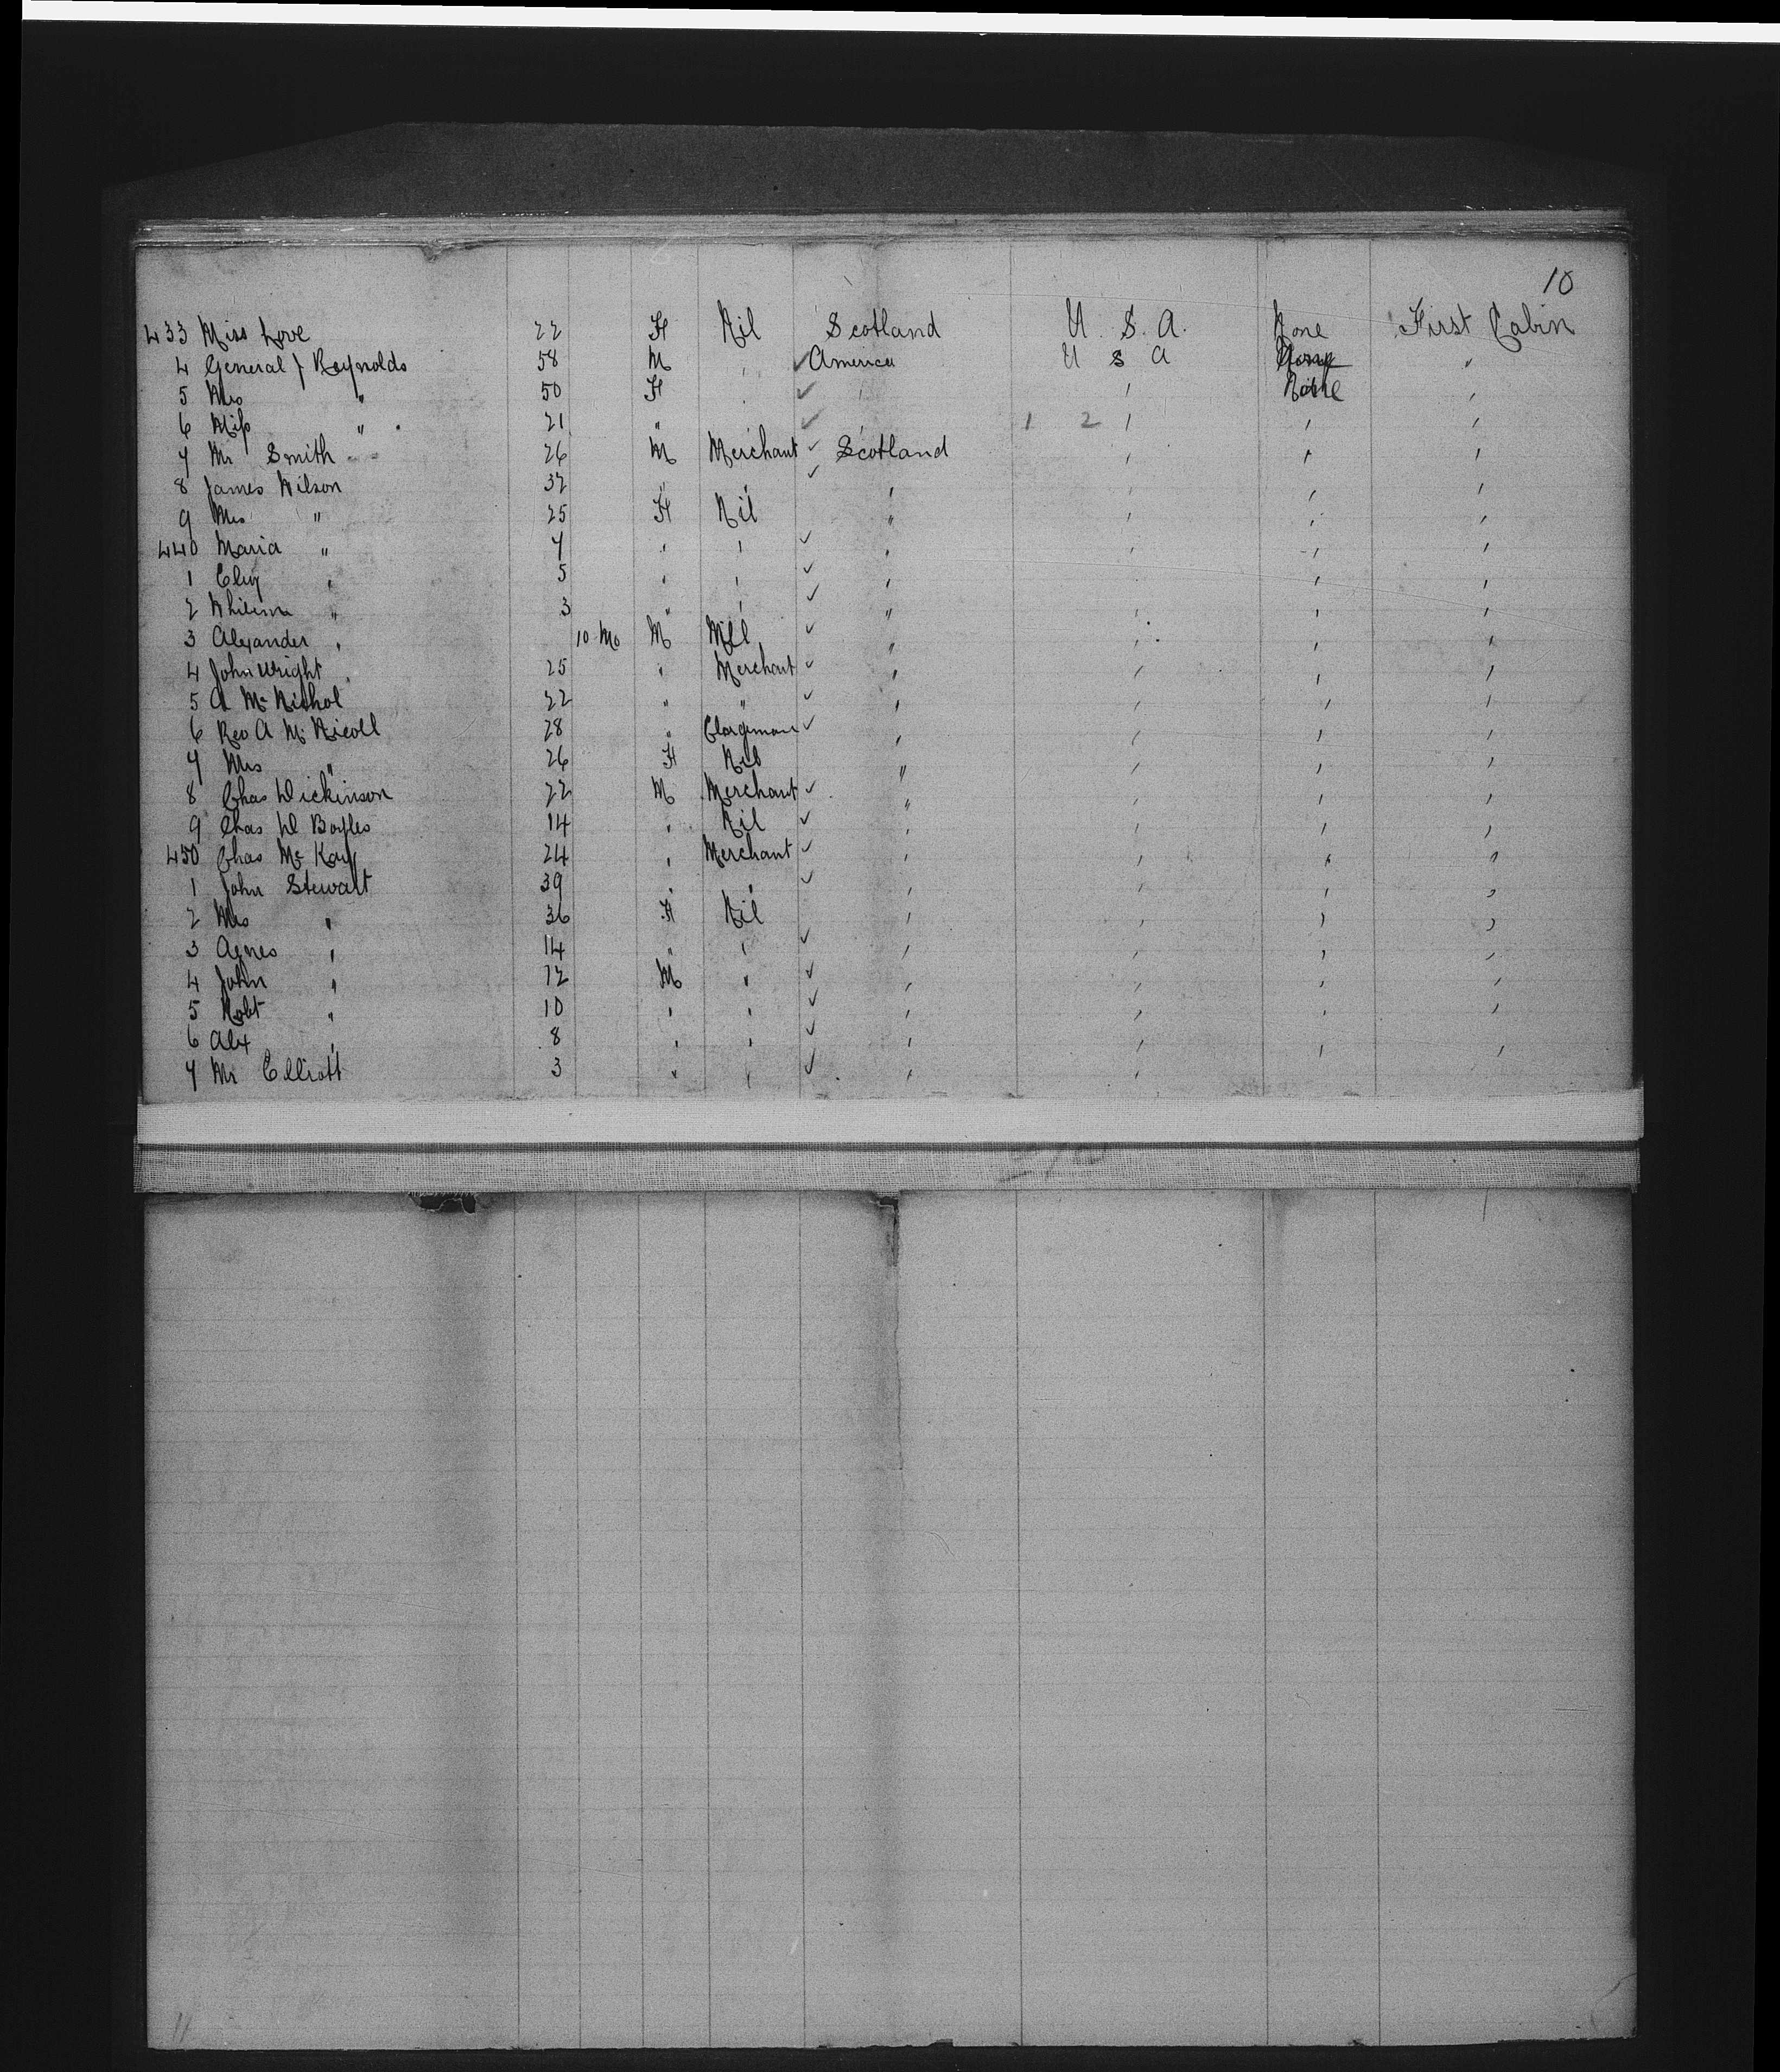 10
433 Miss Love 22 F Nil Scotland U. S. A. None First Cabin
4 General J Reynolds 58 M , ✓ America U S A None "
5 Mrs " 50 F , ✓ , , None ,
6 Miss " 21 " ✓ , 1 2 , , ,
7 Mr Smith 26 M Merchant ✓ Scotland , , ,
8 James Wilson 32 " , ✓ , , , ,
9 Mrs " 25 F Nil " , , ,
440 Maria " 7 , , ✓ , , , ,
1 , 5 , , ✓ , , ,
2 " 3 " , ✓ " , , ,
3 Alexander , 10 Mo M Nil ✓ , , , ,
4 John Wright 25 , Merchant ✓ , , , ,
5 A Mc Nichol 22 " " ✓ , , , ,
6 Rev A Mc Nicoll 28 " Clargiman ✓ , , , ,
7 Mrs " 26 F Nil " , , ,
8 Chas Dickinson 22 M Merchant ✓ " , , ,
9 Chas D Boyles 14 , Nil ✓ , , , ,
450 Chas Mc Kay 24 , Merchant ✓ , , , ,
1 John Stewart 39 , , ✓ , , , ,
2 Mrs " 36 F Nil , , , ,
3 Agnes , 14 " , ✓ , , , ,
4 John " 12 M " ✓ , , , ,
5 Robt " 10 , , ✓ , , , ,
6 Alex , 8 , , ✓ , , , ,
7 Mr Elliott 3 " , ✓ , ,
11